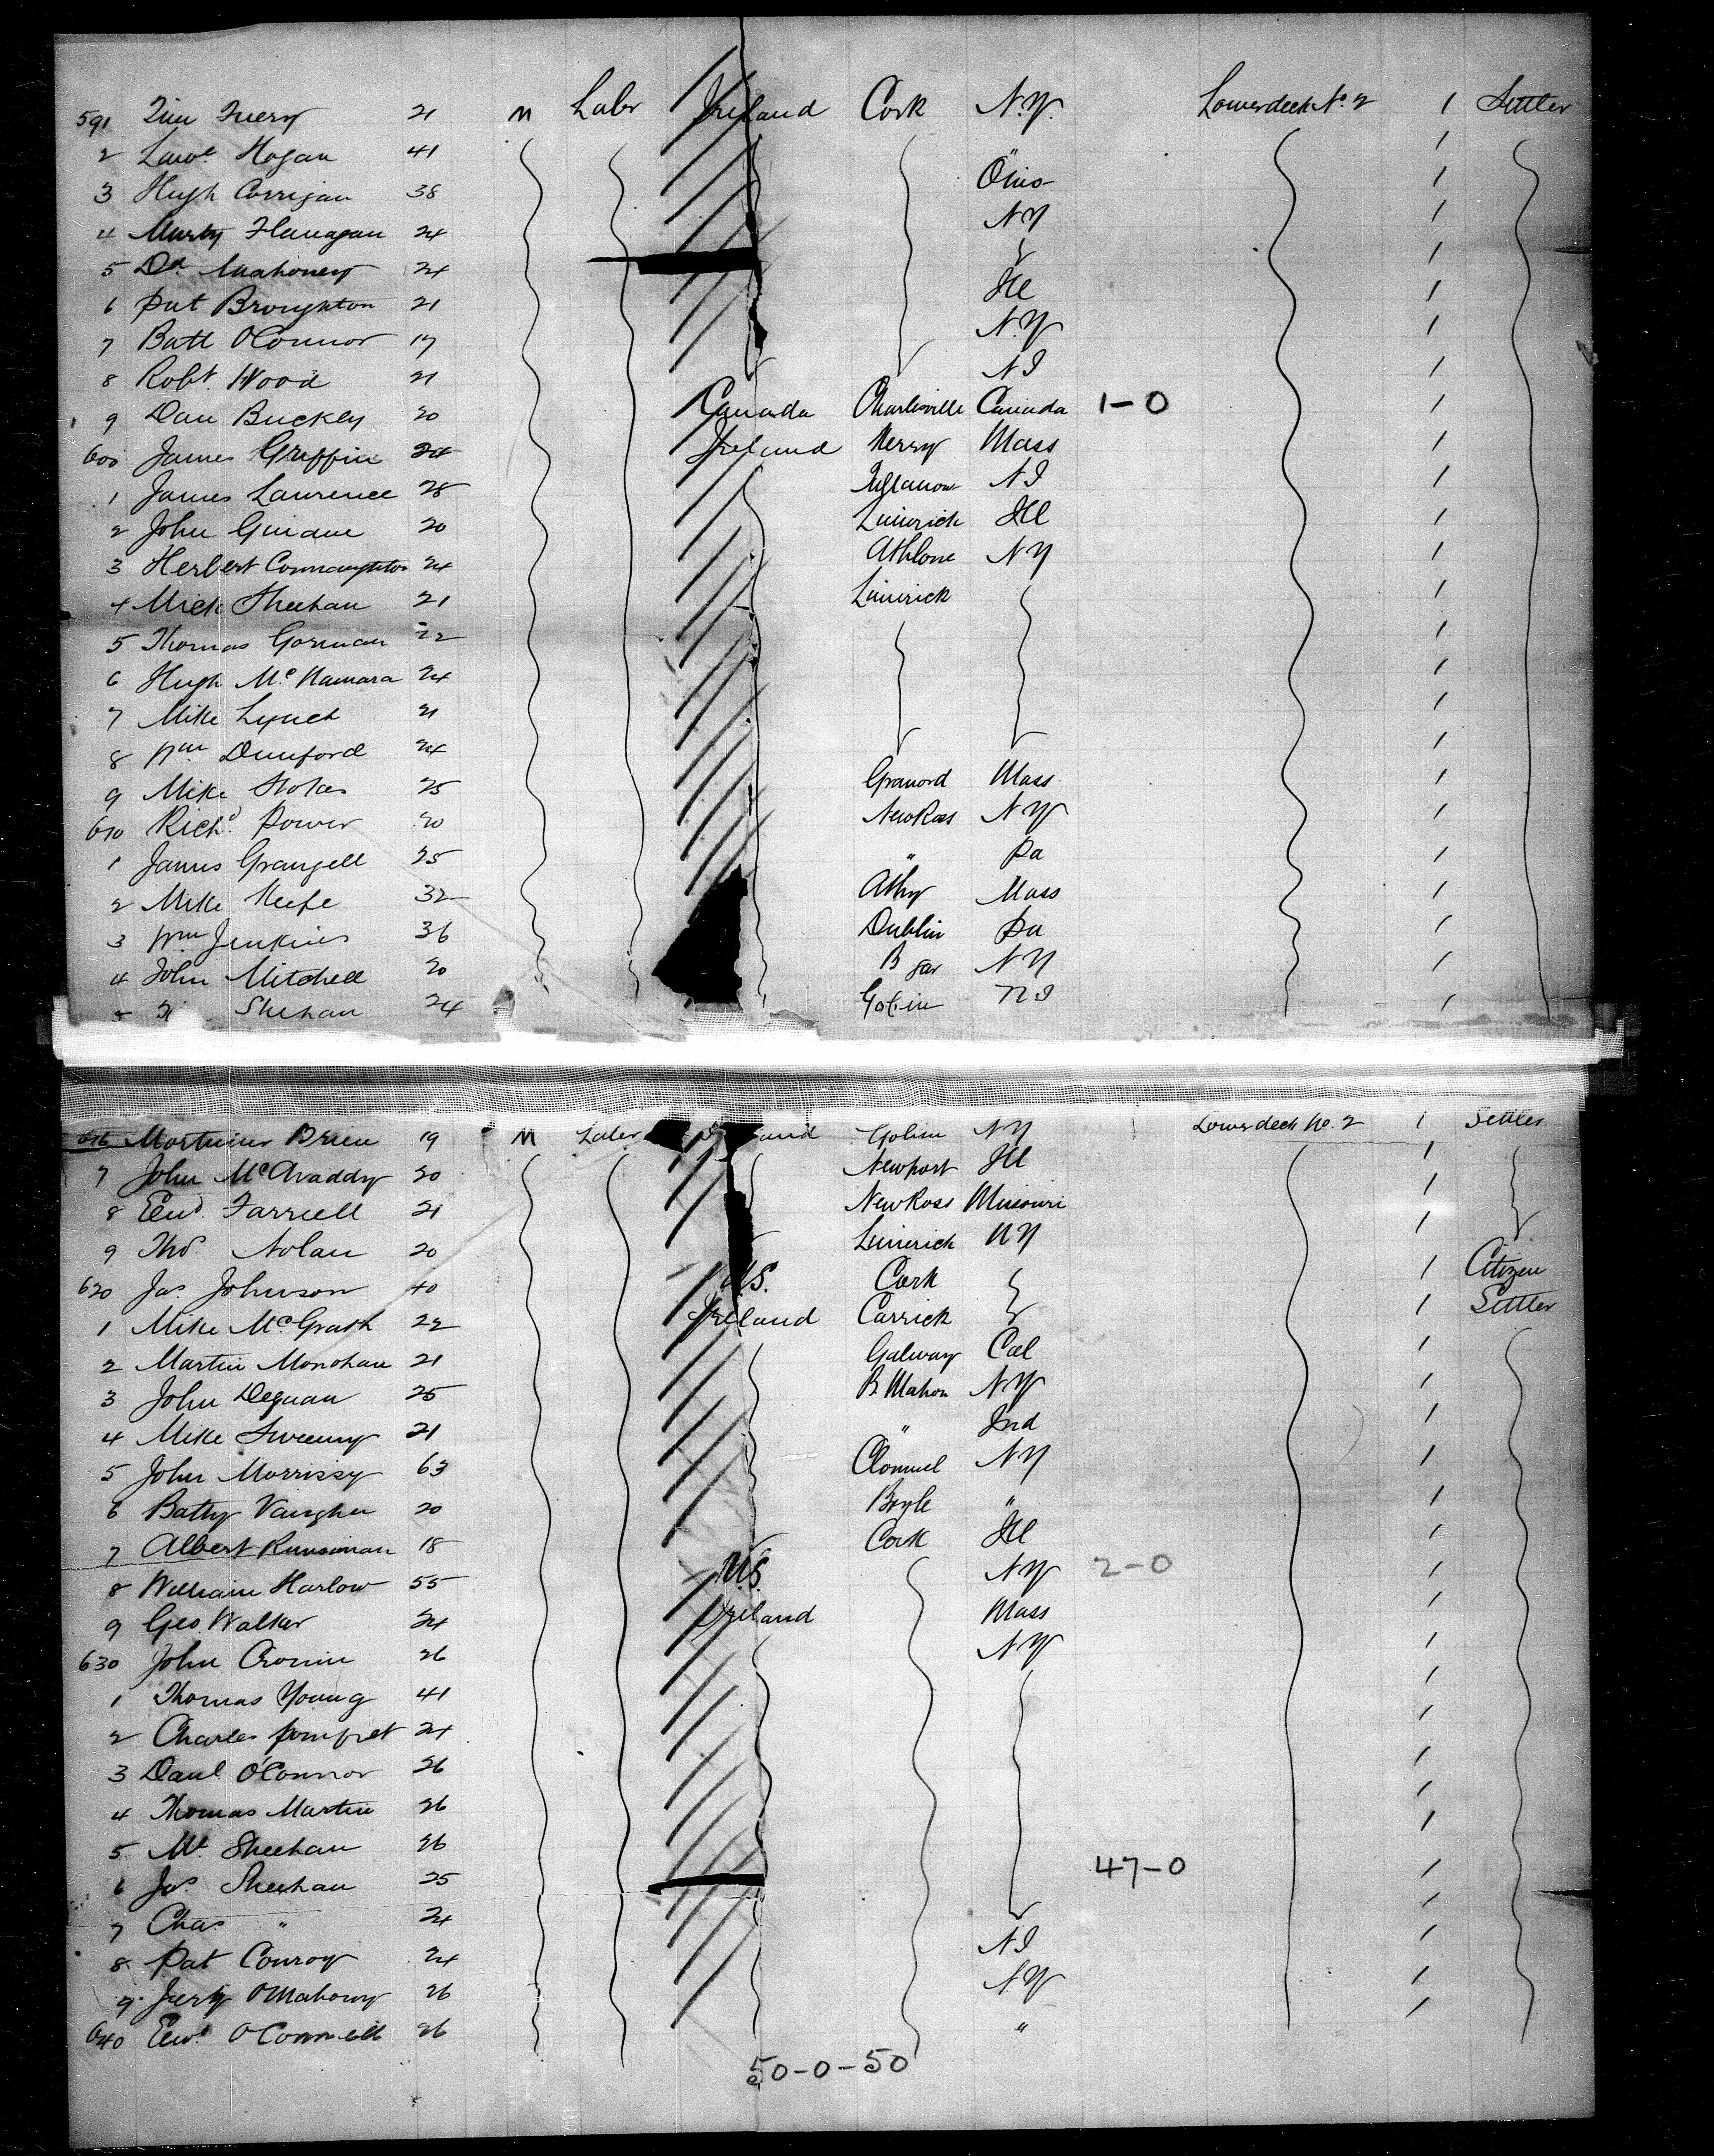 591 Tim 21 M Labr Ireland Cork N.Y. Lowerdeck No. 2 1 Settler
2 Lawc. Hogan 41 " 1
3 Hugh Corrigan 38 Ohio 1
4 Murty Flanagan 24 NY 1
5 Dd. Mahoney 24 1
6 Pat Broughton 21 Ill 1
7 Batt O'Connor 19 N.Y 1
8 Robt. Wood 21 NJ 1
9 Dan Buckley 20 Canada Charlesville Canada 1-0 1
600 James Griffin 24 Ireland Kerry Mass 1
1 James Lawrence 28 NJ 1
2 John Guidane 20 Limerick Ill 1
3 Herbert Connaughton 24 Athlone NY 1
4 Mick Sheehan 21 Limerick 1
5 Thomas Gorman 22 1
6 Hugh McNamara 24 1
7 Mike Lynch 21 1
8 Wm Dunford 24 1
9 Mike Stokes 25 Granard Mass 1
610 Richd. Power 20 New Ross NY
1 James Grangell 25 " Pa 1
2 Mike Keefe 32 Athy Mass 1
3 Wm Jenkins 36 Dublin Pa 1
4 John Mitchell 20 B gar NY 1
5 Shehan 24 NJ 1
616 Mortimer Brien 19 M Labr and NY Lowerdeck No. 2 1 Settler
7 John McAvaddy 20 Newport Ill 1
8 Edwd. Farrell 21 New Ross Missouri 1
9 Thos. Nolan 20 Limerick NY 1
620 Jas. Johnson 40 U.S. Cork 1 Citizen
1 Mike McGrath 22 Ireland Carrick 1 Settler
2 Martin Monohan 21 Galway Cal 1
3 John Degnan 25 B. Mahon NY 1
4 Mike Sweeny 21 " Ind 1
5 John Morrissy 63 Clonmel NY 1
6 Batty Vaughn 20 Boyle " 1
7 Albert Runsiman 18 Cork Ill 1
8 William Harlow 55 U.S. NY 2-0 1
9 Geo. Walker 24 Ireland Mass 1
630 John Cronin 26 NY 1
1 Thomas Young 41 1
2 Charles Pomfret 24 1
3 Danl. O'Connor 26 1
4 Thomas Martin 26 1
5 Mt. Sheehan 26 1
6 Jas. Sheehan 25 47-0 1
7 Chas " 24 1
8 Pat Conroy 24 NJ 1
9 Jerry OMahony 26 N.Y 1
640 Edwd. O'Connell 26 " 1
50-0-50